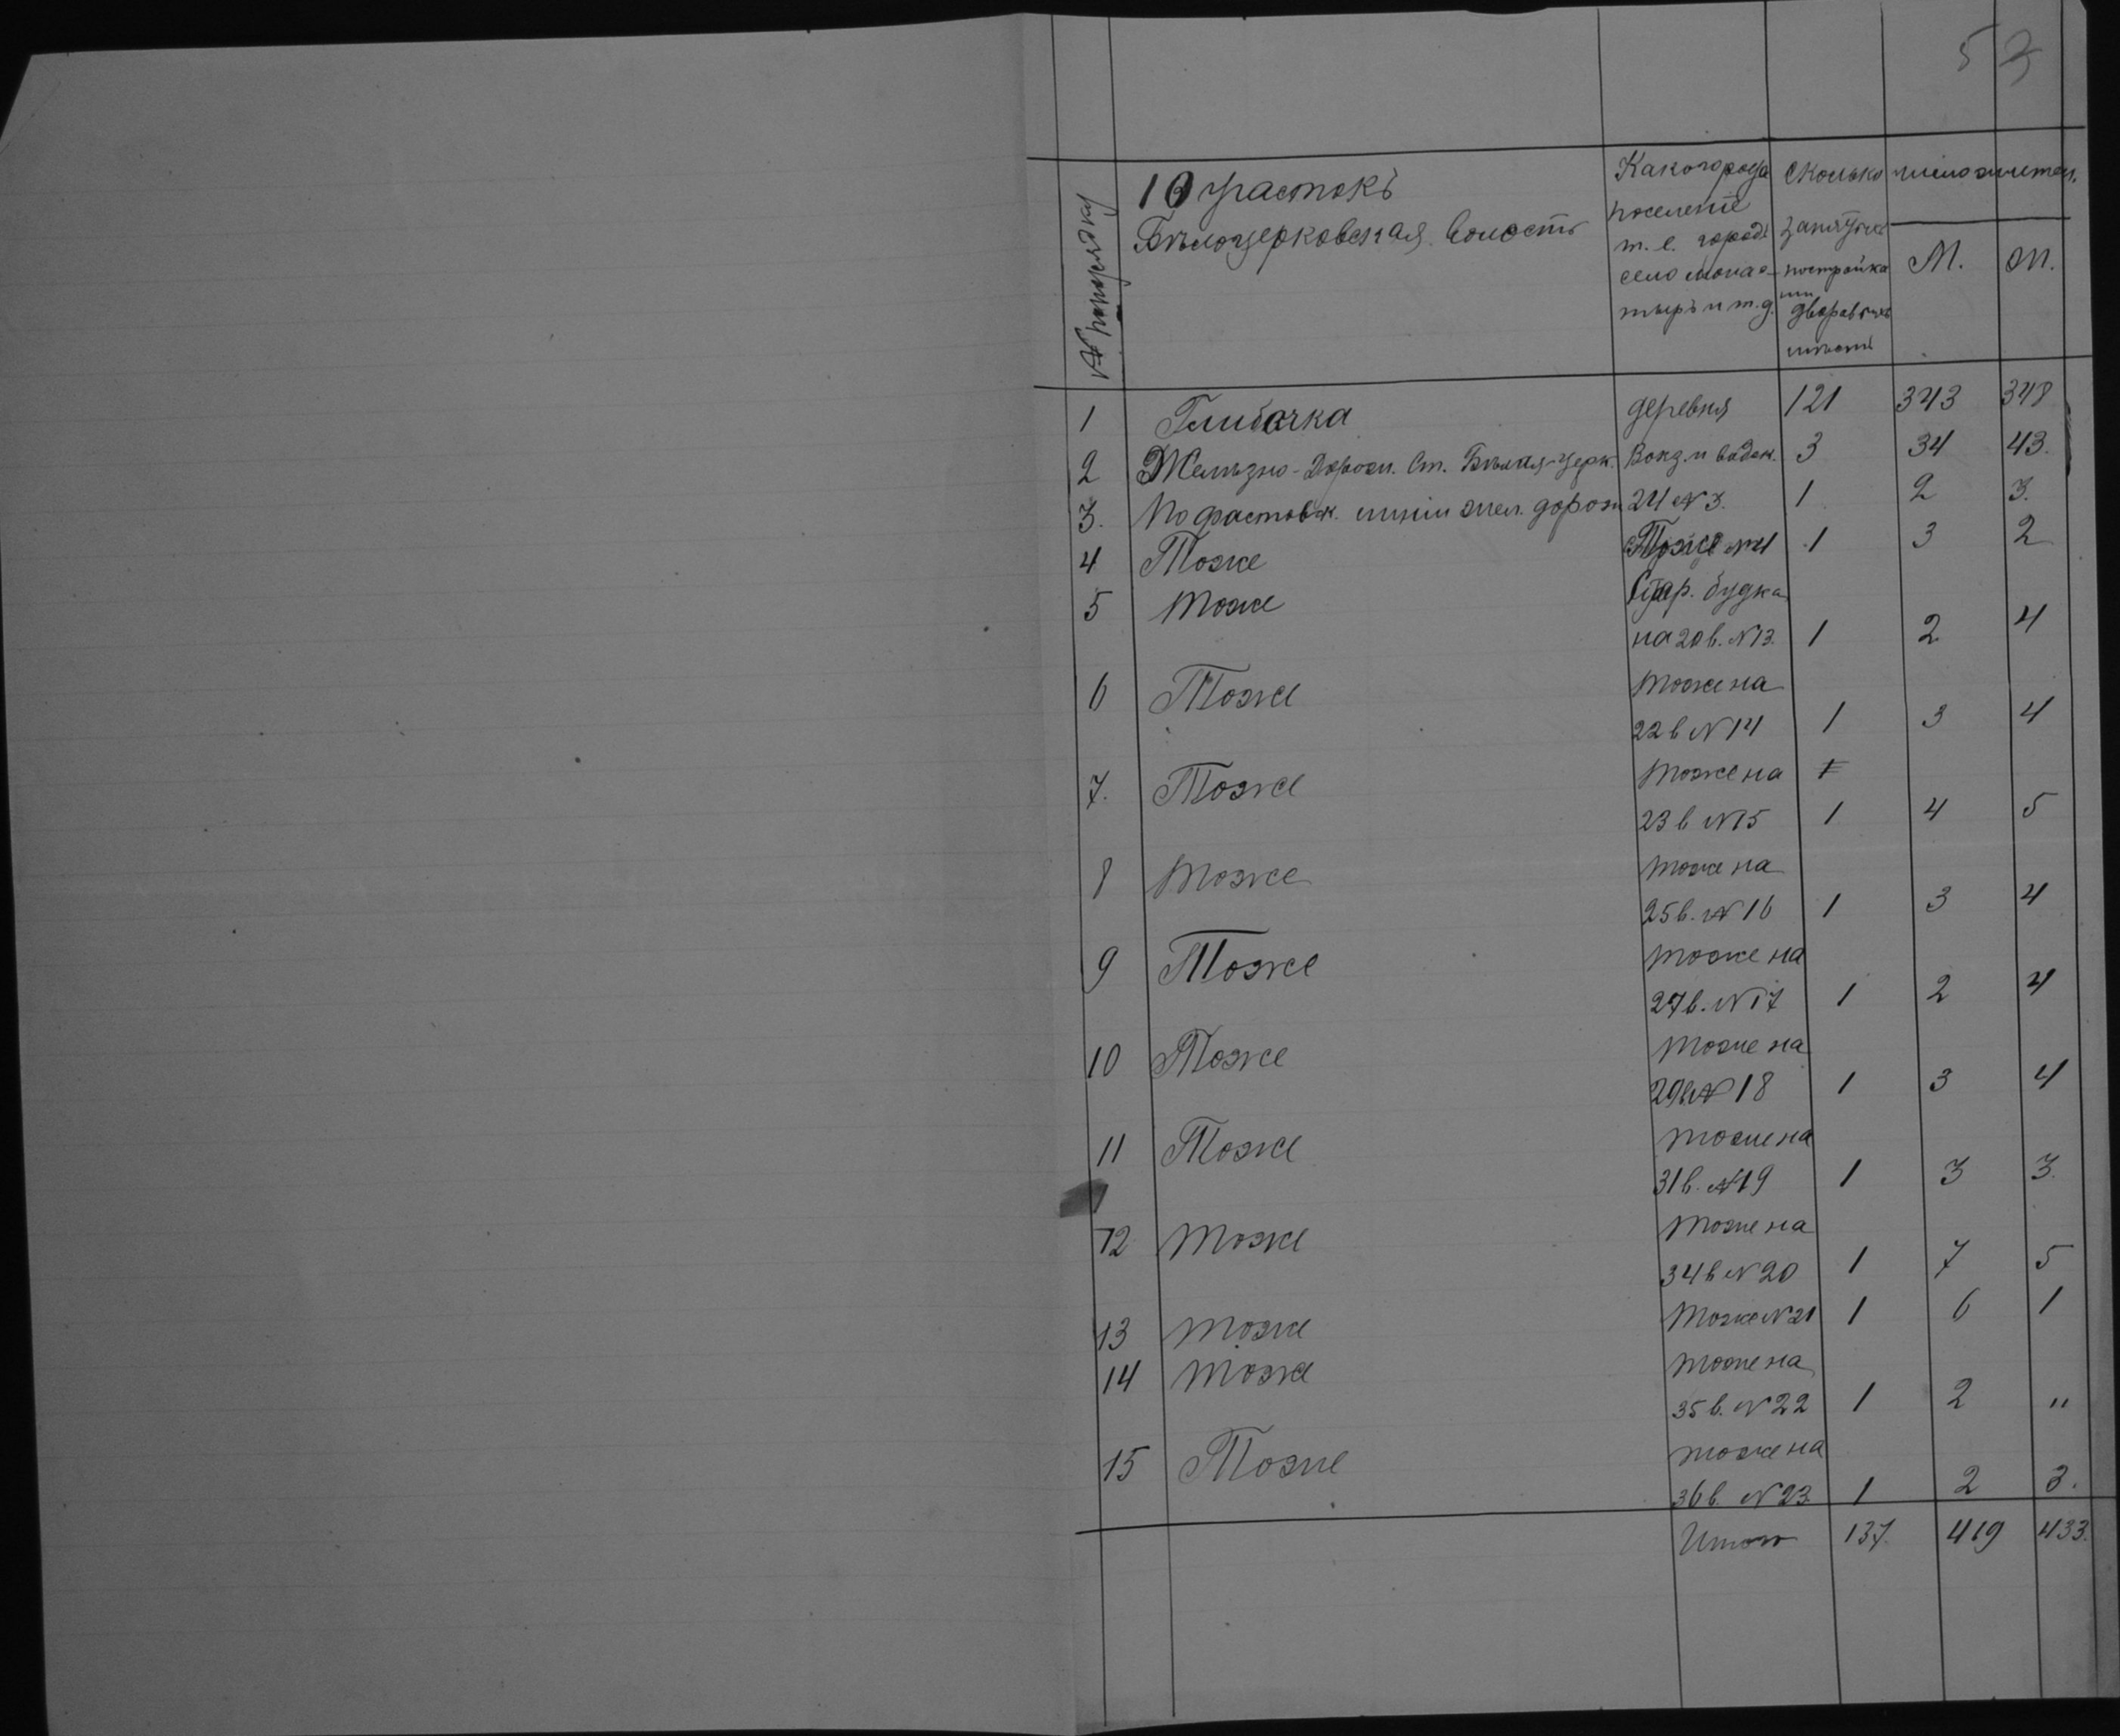 53
№ по порядку
10 участокъ
Бѣлоцерковская волость
Какого рода поселеніе т. е. городъ село монастырь и т. д.
Сколько занятыхъ постройками дворовыхъ мѣстъ
число жител.
М. Ж.
1 Глибочка деревня 121 343 348
2 Желѣзно-Дорожн. Ст. Бѣлая-Церк. Вокз. и водок. 3 34 43.
3. По фастовск. линіи жел. дорож. 24 № 3. 1 2 3.
4 Тоже Тоже №4 1 3 2
5 Тоже Стор. будка
на 20 в. №13. 1 2 4
6 Тоже Тоже на
22 в №14 1 3 4
7. Тоже Тоже на
23 в №15 1 4 5
8 Тоже Тоже на
25 в. №16 1 3 4
9 Тоже Тоже на
27 в. №17 1 2 4
10 Тоже Тоже на
29 в №18 1 3 4
11 Тоже Тоже на
31 в. №19 1 3 3.
12 Тоже Тоже на
34 в №20 1 7 5
13 Тоже Тоже №21 1 6 1
14 Тоже Тоже на
35 в. №22 1 2 "
15 Тоже Тоже на
36 в. №23. 1 2 3.
Итого 137. 419 433.